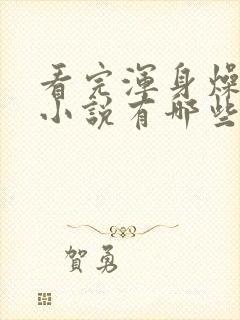 看完渾身燥
小說有哪些
賀勇